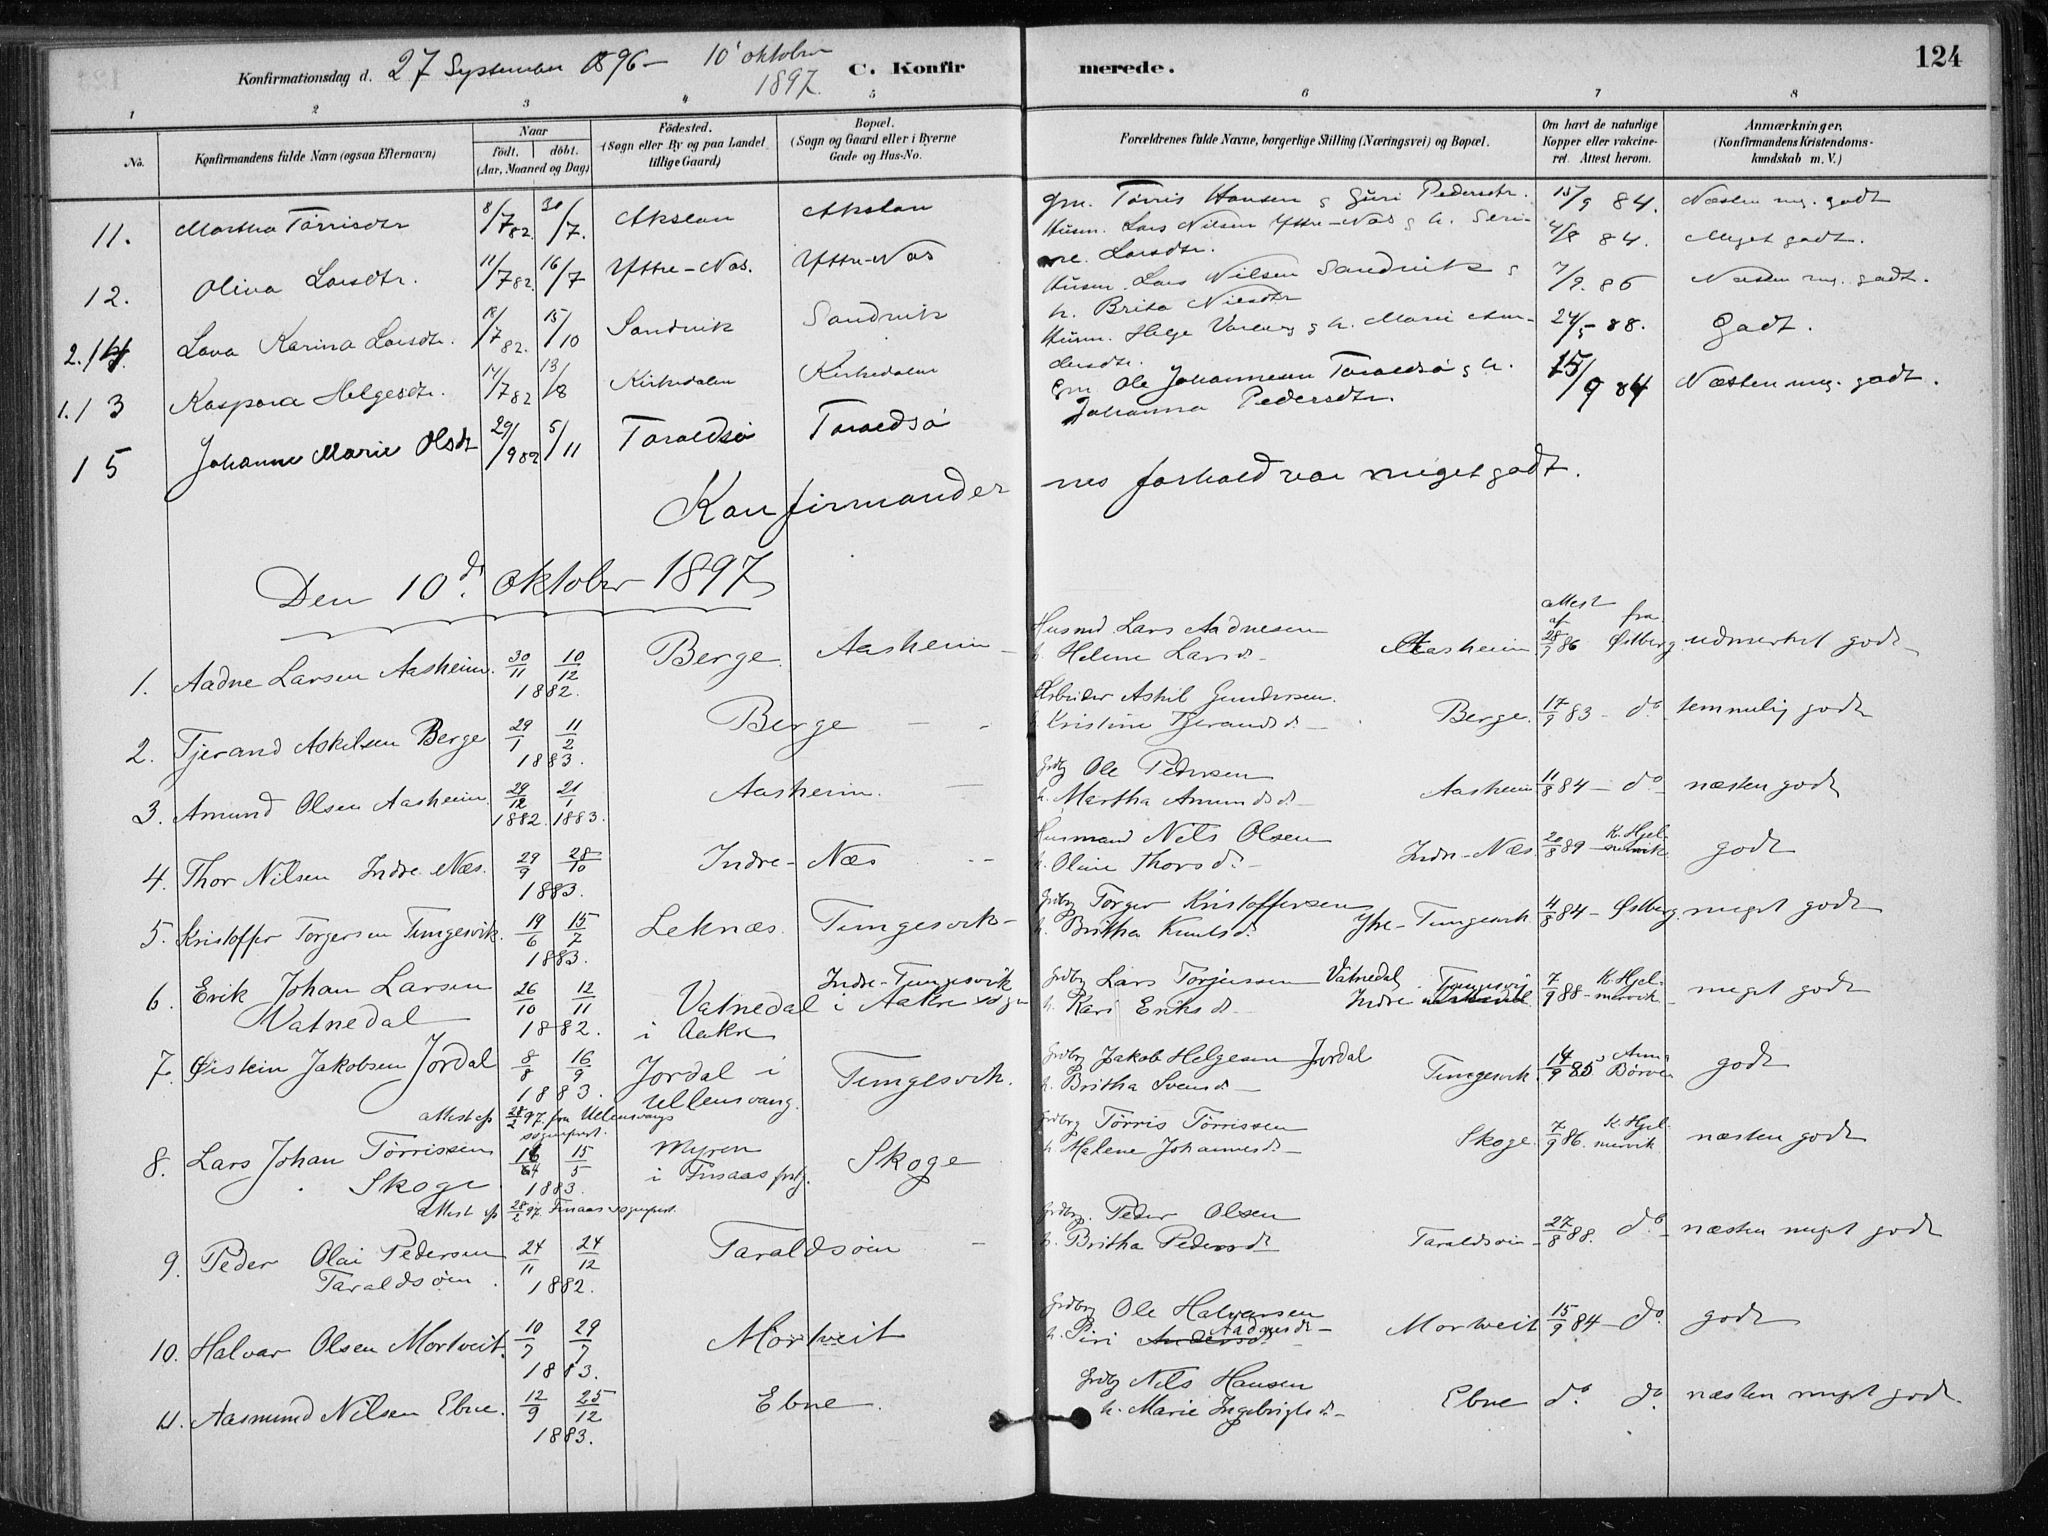 Konfirmationsdag d. 27 September 1896 – 10' oktober 1897. C. Konfirmerede. 124
1 2 3 4 5 6 7 8
No. Konfirmandens fulde Navn (ogsaa Efternavn) Naar født. døbt. (Aar, Maaned og Dag) Fødested. (Sogn eller By og paa Landet tillige Gaard) Bopæl. (Sogn og Gaard eller i Byerne Gade og Hus-No. Forældrenes fulde Navne, borgerlige Stilling (Næringsvei) og Bopæl. Om havt de naturlige Kopper eller vakcineret. Attest herom. Anmærkninger. (Konfirmandens Kristendomskundskab m. V.)
11. Martha Tørrisdtr 8/7 82. 30/7. Akslan Akslan Gm. Tørris Hansen g Guri Pedersdtr. 15/9 84. Næsten mg. godt
12. Oliva Larsdtr. 11/7 82. 16/7 Yttre-Næs. Yttre-Næs Husm. Lars Nilsen Yttre-Næs g h. Serine Larsdtr. 4/8 84. Meget godt.
2.14. Lava Karina Larsdtr. 18/7 82. 15/10 Sandvik Sandvik Husm. Lars Nilsen Sandvik g h. Brita Nilsdtr 7/9. 86 Næsten mg. godt.
1.13 Kaspara Helgesdtr. 14/7 82 13/8 Kirkedalen Kirkedalen Husm. Helge g h. Marie Andersdtr. 24/5 – 88. Godt.
15 Johanne Marie Olsdt 29/9 82 5/11 Taraldsø Taraldsø Gm Ole Johannesen Taraldsø g h. Johanna Pedersdtr. 15/9 84 Næsten meg. godt.
Konfirmandernes forhold var meget godt.
Den 10d. oktober 1897
1. Aadne Larsen Aasheim. 30/11 10/12 1882. Berge. Aasheim – Husmd. Lars Aadnesen h. Helene Larsd. – Aasheim attest af 28/9 86 fra Østberg. udmerket godt –
2. Tjerand Askilsen Berge 29/1 11/2 1883. Berge – – Arbeider Askil Gundersen. h Kristine Tjerandsd. – Berge. 17/9 83 – do. temmelig godt
3. Amund Olsen Aasheim. 29/12 1882. 21/1 1883. Aasheim. – Grdbg Ole Pedersen h. Martha Amundsd. – Aasheim 11/8 84 – do næsten godt
4. Thor Nilsen Indre Næs. 29/9 28/10 1883. Indre – Næs – – Husmand Nils Olsen h. Oline Thorsd. – Indre-Næs 20/8 89 – K. Hjelmervik. godt
5. Kristoffer Torgersen Tungesvik. 19/6 15/7 1883. Leknæs. Tungesvik – Grdbrg Torger Kristoffersen h. Britha Knutsd. Ytre-Tungesvik. 4/8 84 – Østberg. meget godt
6. Erik Johan Larsen Vatnedal 26/10 12/11 1882. Vatnedal i Aakre Indre-Tungesvik i Aakre sogn Grdbrg Lars Torjussen Vatnedal h. Kari Eriksd. – Indre Tungesvik 7/9 88 – K. Hjelmervik – meget godt
7. Øistein Jakobsen Jordal 8/8 16/9 1883. Jordal i Ullensvang. Tungesvik. Grdbrg Jakob Helgesen Jordal h. Britha Svensd. – Tungesvik. 14/9 85 Anna Børve godt
attest af 28/2 97. fra Ullensvangs sogneprest.
8. Lars Johan Tørrissen Skoge 15/5 1883. Myren i Finaas prstg. Skoge Grdbrg Tørris Tørrissen h Malene Johannesd. – Skoge. 7/9 86. K. Hjelmervik næsten godt
attest af 28/2 97. Finaas sogneprst.
9. Peder Olai Pedersen Taraldsøen. 24/11 24/12 1882. Taraldsøen – Grdbrg. Peder Olsen h. Britha Pedersdt Taraldsøen 27/8 88. do – næsten meget godt
10. Halvar Olsen Mortveit. 10/7 29/7 1883. Mortveit Grdbrg Ole Halvarsen h. Piri Andersd. Aadnesd. – Mortveit 15/9 84 – do. godt
11. Aasmund Nilsen Ebne. 12/9 25/12 1883. Ebne. Grdbg Nils Hansen h. Marie Ingebrigtsd. – Ebne do. do. næsten meget godt